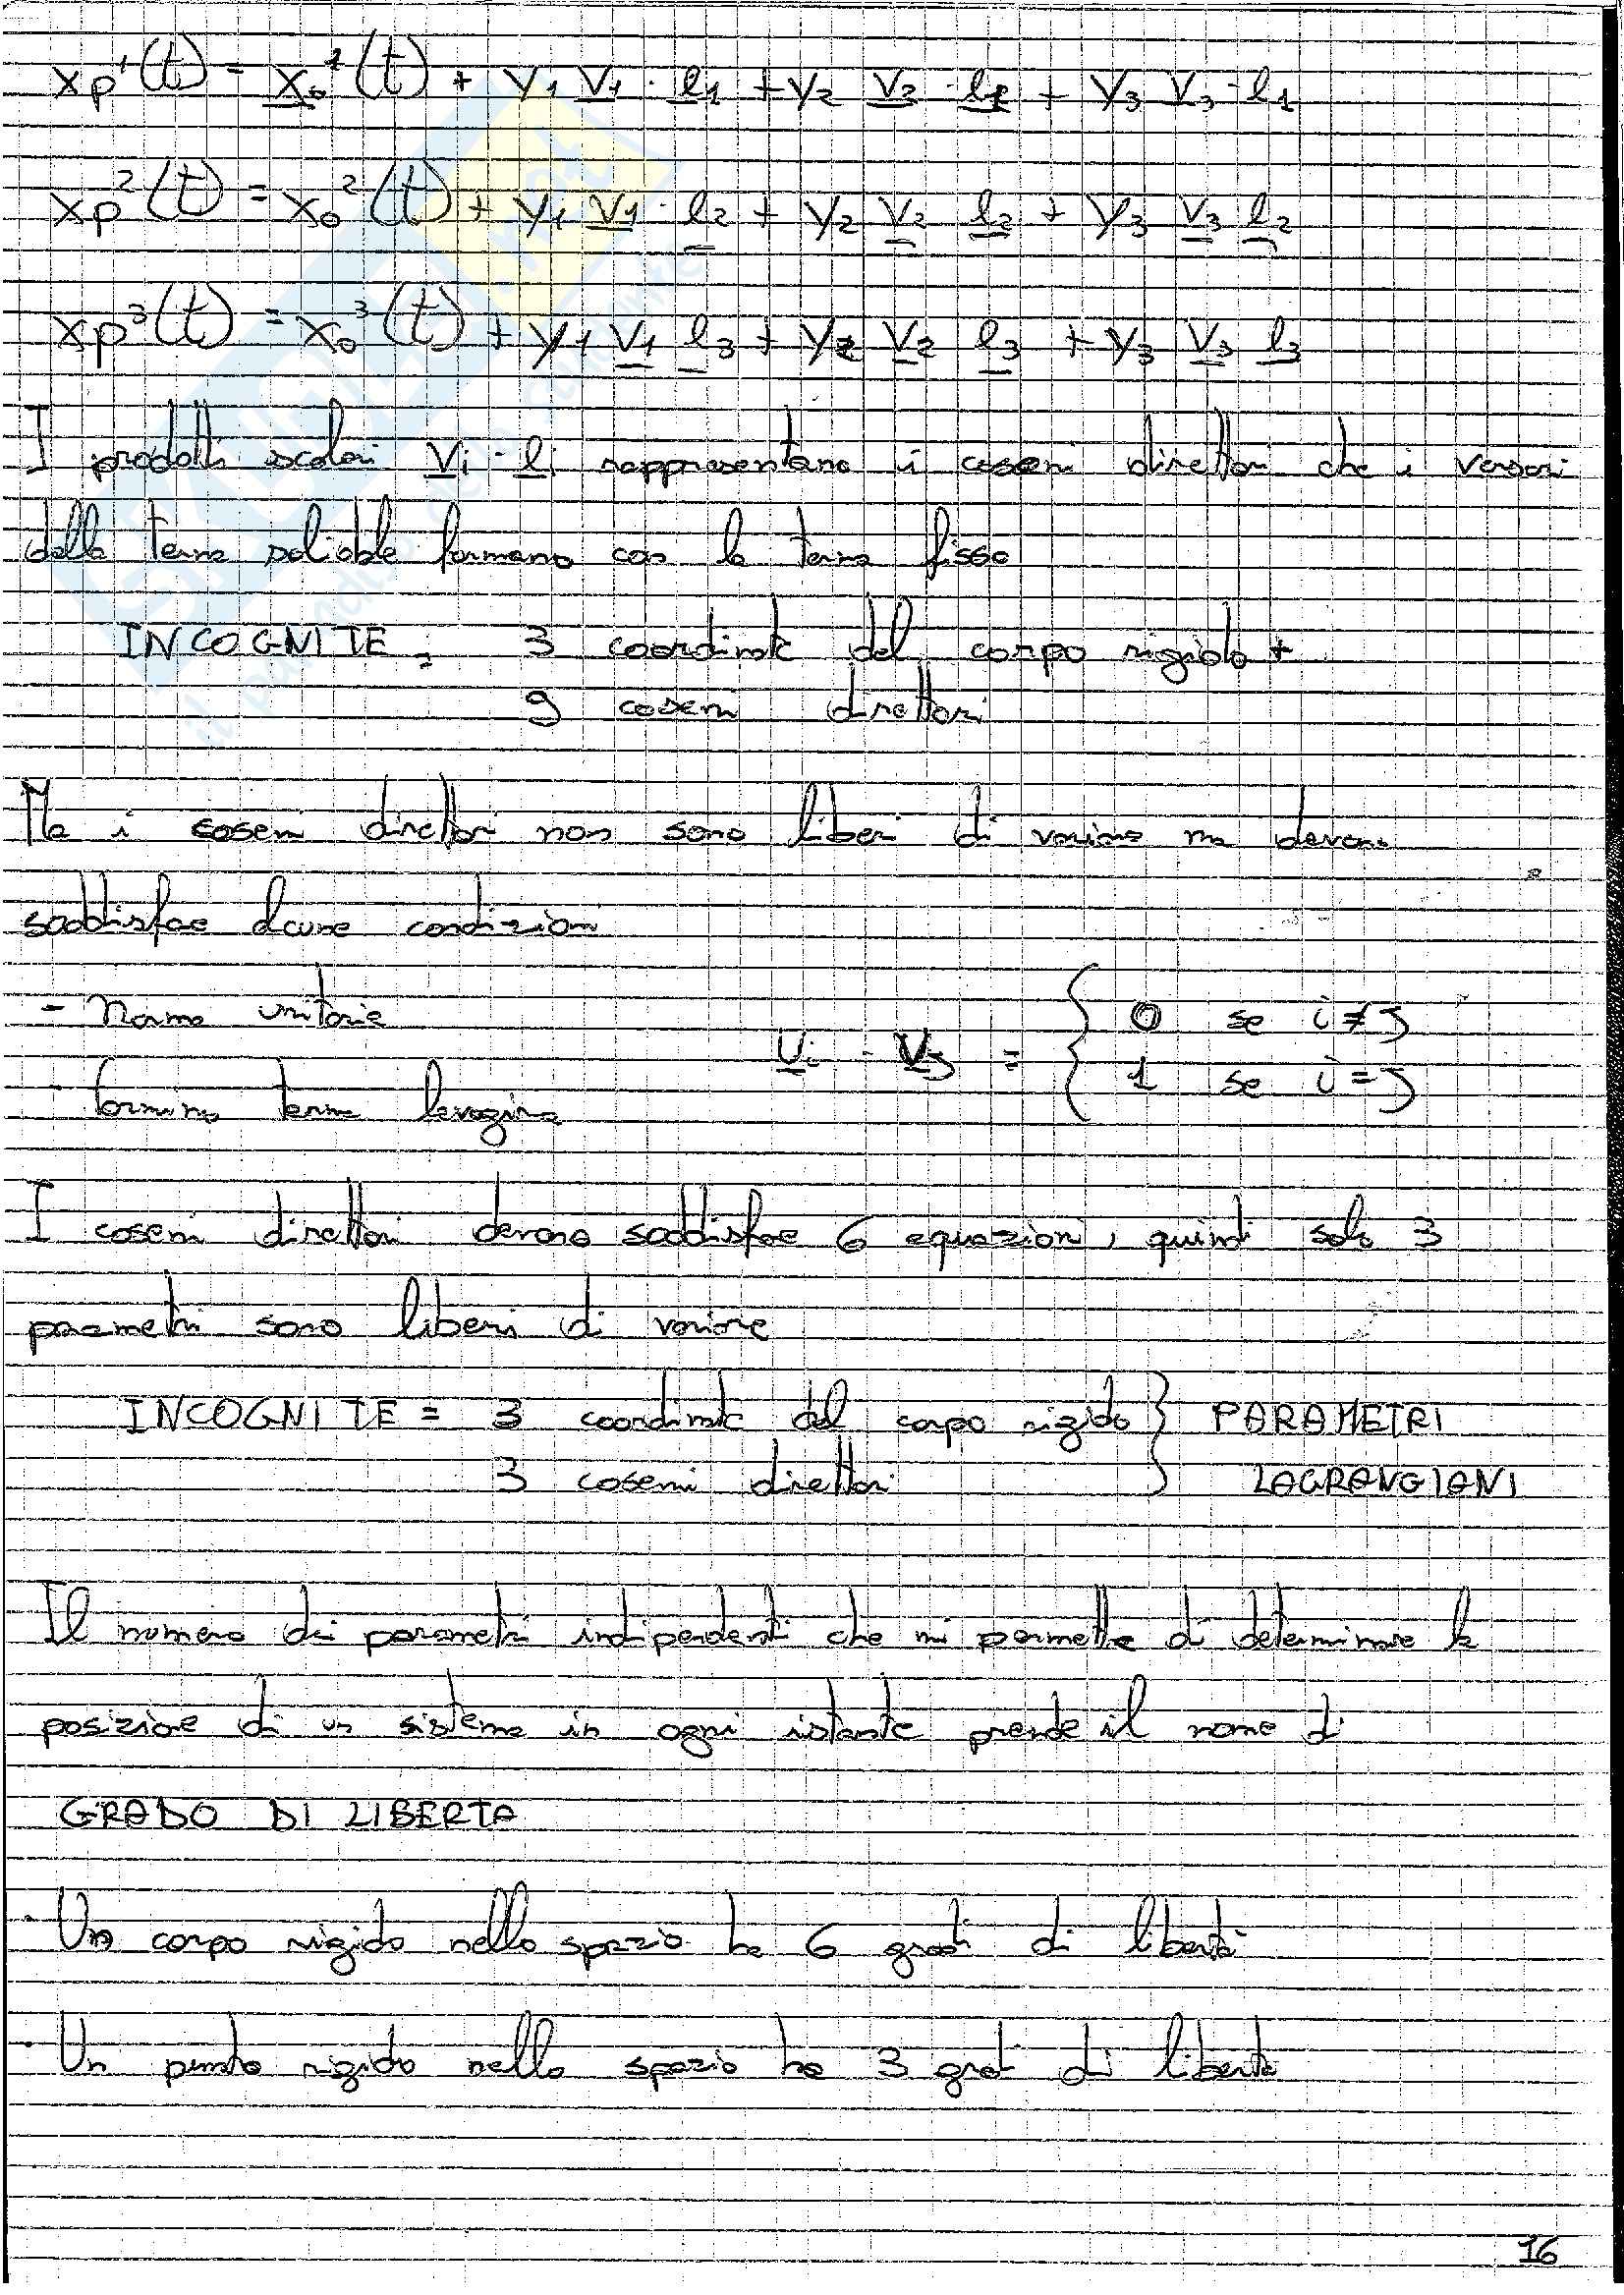 xp¹(t) = x₀¹(t) + y₁ v₁ · e₁ + y₂ v₂ · e₁ + y₃ v₃ · e₁
xp²(t) = x₀²(t) + y₁ v₁ · e₂ + y₂ v₂ e₂ + y₃ v₃ e₂
xp³(t) = x₀³(t) + y₁ v₁ e₃ + y₂ v₂ e₃ + y₃ v₃ e₃
I prodotti scalari vi · ei rappresentano i coseni direttori che i versori
della terna solidale formano con la terna fissa
INCOGNITE = 3 coordinate del corpo rigido +
9 coseni direttori
Ma i coseni direttori non sono liberi di variare ma devono
soddisfare alcune condizioni
- Norma unitaria
vi · vj = { 0 se i ≠ j
1 se i = j
- formino terna levogira
I coseni direttori devono soddisfare 6 equazioni, quindi solo 3
parametri sono liberi di variare
INCOGNITE = 3 coordinate del corpo rigido } PARAMETRI
3 coseni direttori LAGRANGIANI
Il numero di parametri indipendenti che mi permette di determinare la
posizione di un sistema in ogni istante prende il nome di
GRADO DI LIBERTA
· Un corpo rigido nello spazio ha 6 gradi di libertà
· Un punto rigido nello spazio ha 3 gradi di liberta
16